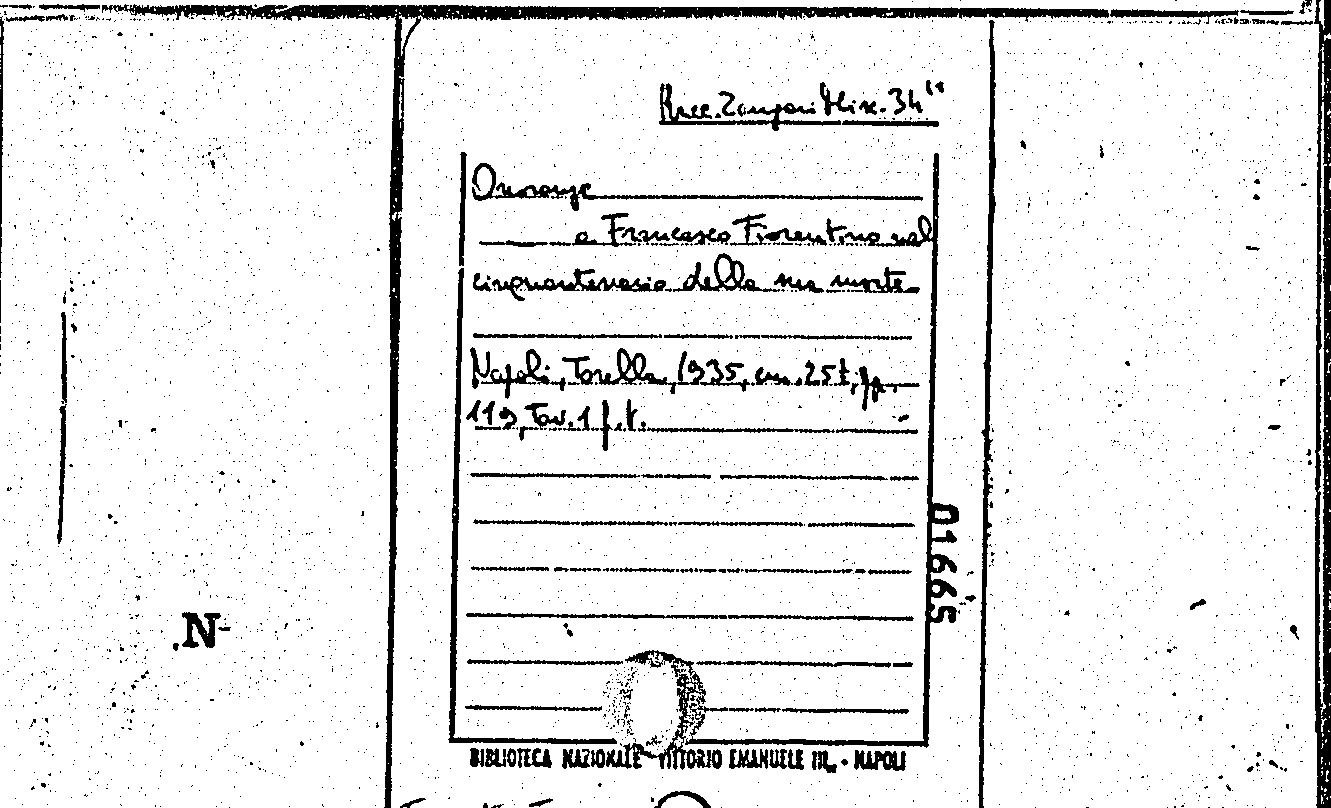 Racc. Zangari Misc. 34
Onoranze
a Francesco Fiorentino nel
cinquantenario della sua morte.
Napoli, Torella, 1935, cm. 25½, pp.
119, Tav. 1 f. t.
01665
.N-
BIBLIOTECA NAZIONALE "VITTORIO EMANUELE III„ - NAPOLI